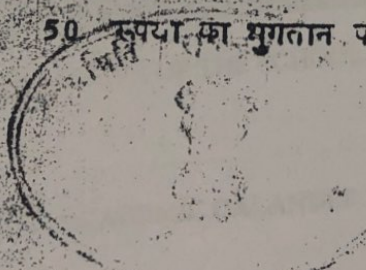 50 रुपया का भुगतान
मिति